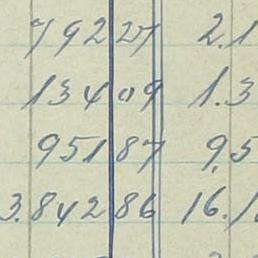 792 27 2.1
134 09 1.3
951 87 9,5
3.842 86 16.1